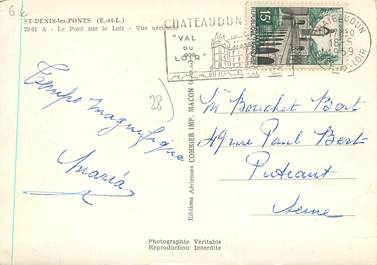 6 €
ST-DENIS-les-PONTS (E.-et-L.)
7941 A - Le Pont sur le Loir - Vue aérienne
CHATEAUDUN
"VAL
DU
LOIR"
15F
CHATEAUDUN
28
Temps magnifique
Maria
Editions Aériennes COMBIER IMP. MACON
Mr Bouchet Bert
49 rue Paul Bert
Puteaux
Seine
Photographie Véritable
Reproduction Interdite